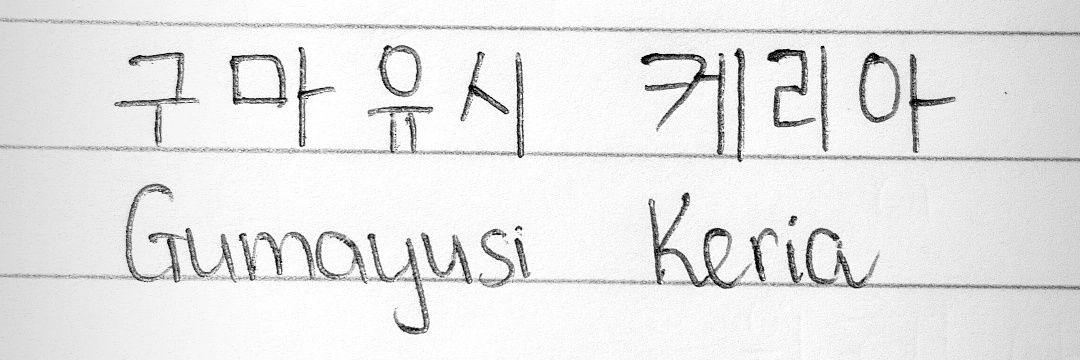 구마유시 케리아
Gumayusi Keria